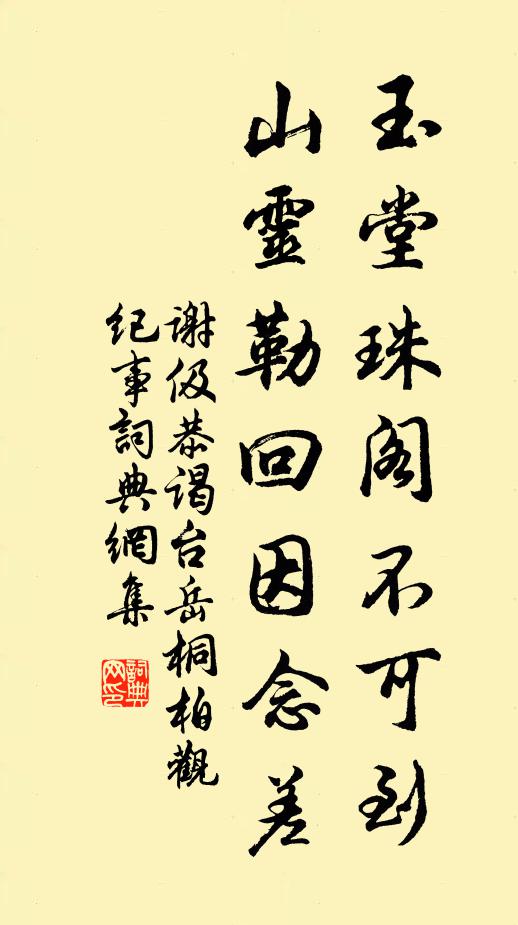 玉堂珠阁不可到
山靈勒回因念差
谢伋恭谒台岳桐柏觀
纪事詞典網集
詞典网印